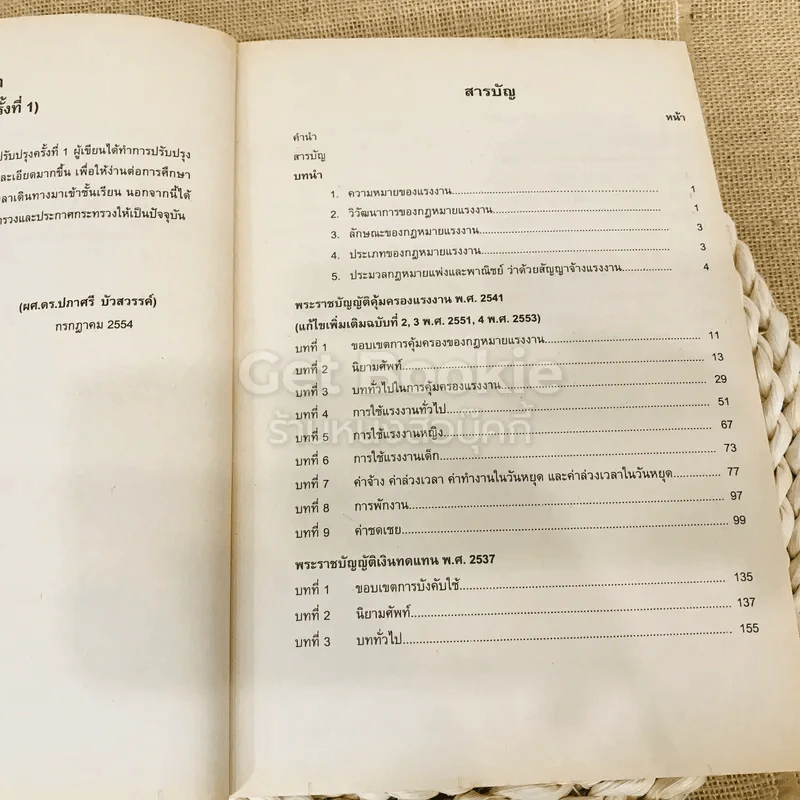 รั้งที่ 1)
ปรับปรุงครั้งที่ 1 ผู้เขียนได้ทำการปรับปรุง
ละเอียดมากขึ้น เพื่อให้ง่านต่อการศึกษา
ลาเดินทางมาเข้าชั้นเรียน นอกจากนี้ได้
ทรวงและประกาศกระทรวงให้เป็นปัจจุบัน
(ผศ.ดร.ปภาศรี บัวสวรรค์)
กรกฎาคม 2554
สารบัญ
หน้า
คำนำ
สารบัญ
บทนำ
1. ความหมายของแรงงาน 1
2. วิวัฒนาการของกฎหมายแรงงาน 1
3. ลักษณะของกฎหมายแรงงาน 3
4. ประเภทของกฎหมายแรงงาน 3
5. ประมวลกฎหมายแพ่งและพาณิชย์ ว่าด้วยสัญญาจ้างแรงงาน 4
พระราชบัญญัติคุ้มครองแรงงาน พ.ศ. 2541
(แก้ไขเพิ่มเติมฉบับที่ 2, 3 พ.ศ. 2551, 4 พ.ศ. 2553)
บทที่ 1 ขอบเขตการคุ้มครองของกฎหมายแรงงาน 11
บทที่ 2 นิยามศัพท์ 13
บทที่ 3 บททั่วไปในการคุ้มครองแรงงาน 29
บทที่ 4 การใช้แรงงานทั่วไป 51
บทที่ 5 การใช้แรงงานหญิง 67
บทที่ 6 การใช้แรงงานเด็ก 73
บทที่ 7 ค่าจ้าง ค่าล่วงเวลา ค่าทำงานในวันหยุด และค่าล่วงเวลาในวันหยุด 77
บทที่ 8 การพักงาน 97
บทที่ 9 ค่าชดเชย 99
พระราชบัญญัติเงินทดแทน พ.ศ. 2537
บทที่ 1 ขอบเขตการบังคับใช้ 135
บทที่ 2 นิยามศัพท์ 137
บทที่ 3 บททั่วไป 155
Get Bookie
ร้านหนังสือบุ๊คกี้